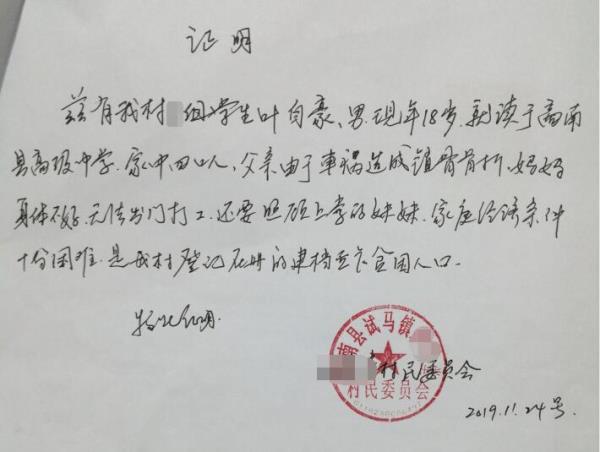 证明
兹有我村 组学生叶自豪、男.现年18岁.就读于商南
县高级中学.家中四口人,父亲由于车祸造成锁骨骨折.妈妈
身体不好.无法出门打工.还要照顾上学的妹妹.家庭经济条件
十份困难.是我村登记在册的建档立卡贫困人口.
特此证明.
南县试马镇
村民委员会
村民委员会
2019.11.24号.